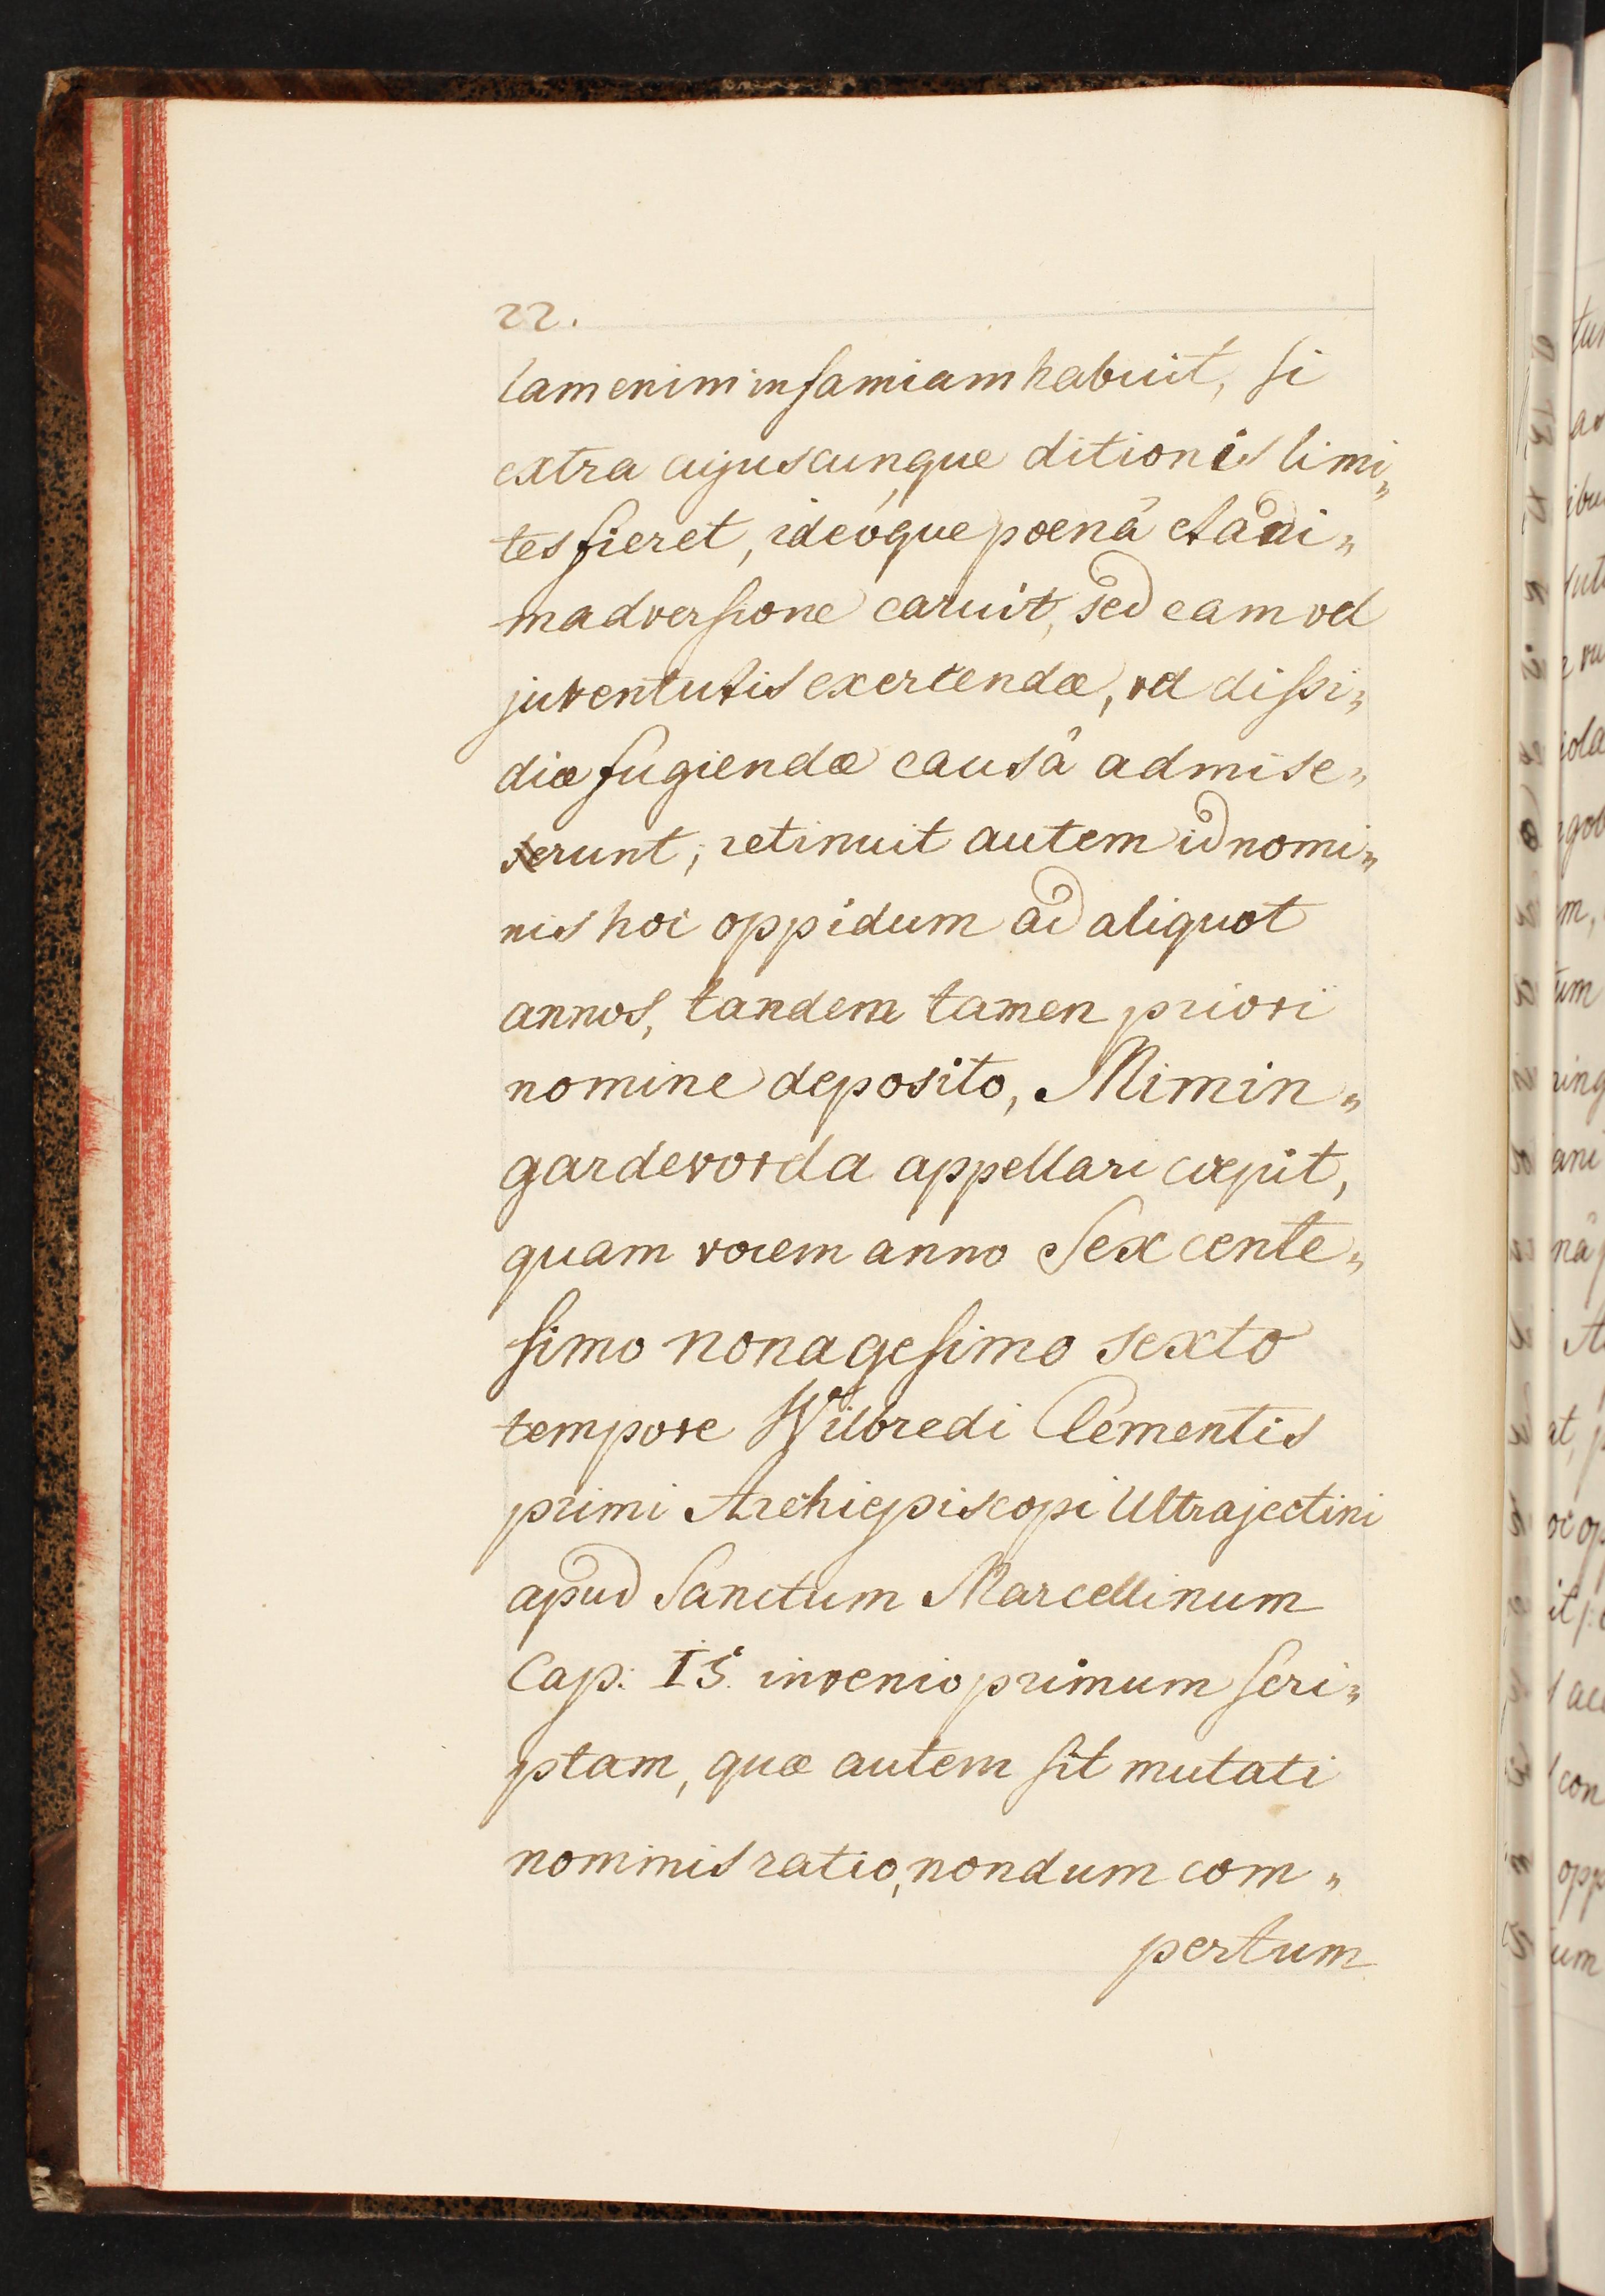 22.
lam enim infamiam habuit, si
extra cujuscunque ditionis limi„
tes fieret, ideóque poenâ et ani„
madversione caruit, sed eam vel
juventutis exercendæ, vel dissi„
diæ fugiendæ causâ admise„
serunt; retinuit autem id nomi„
nis hoc oppidum ad aliquot
annos, tandem tamen priori
nomine deposito, Mimin„
gardevorda appellari cœpit,
quam vocem anno Sexcente„
simo nonagesimo sexto
tempore Wilbredi Clementis
primi Archiepiscopi Ultrajectini
apud Sanctum Marcellinum
Cap: 15. invenio primum scri„
ptam, quæ autem sit mutati
nominis ratio, nondum com„
pertum